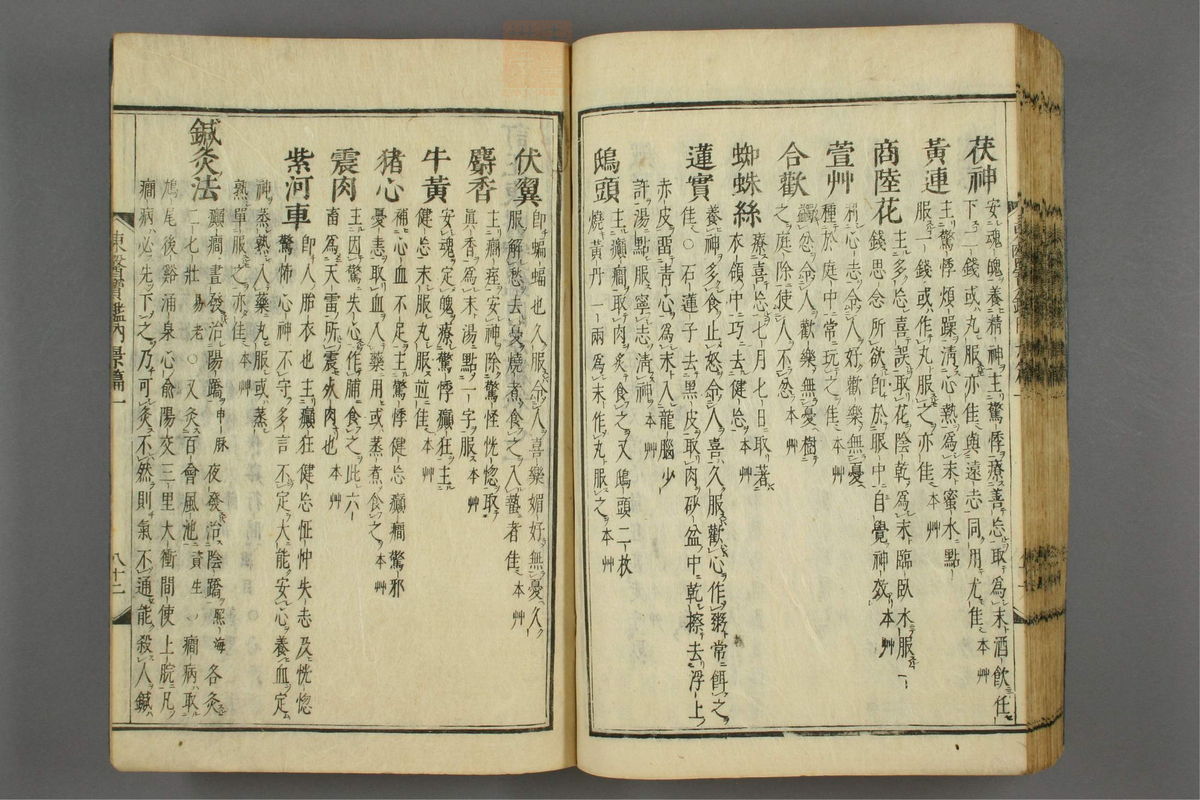 茯神 安魂魄養精神主驚悸療善忘取爲末酒飮任
下二錢或丸服亦佳與遠志同用尤佳 本艸
黃連 主驚悸煩躁淸心熱爲末蜜水點
服一錢或作丸服之亦佳 本艸
商陸花 主多忘喜誤取花陰乾爲末臨臥水服一
錢思念所欲卽於服中自覺神效 本艸
萱艸 利心志令人好歡樂無憂
種於庭中常玩之 本艸
合歡 蠲忿令人歡樂無憂樹
之庭除使人不忿 本艸
蜘蛛絲 療喜忘七月七日取著
衣領中巧去健忘 本艸
蓮實 養神多食止怒令人喜久服歡心作粥常餌之
佳○石蓮子去黑皮取肉砂盆中乾擦去浮上
赤皮留靑心爲末入龍腦少
許湯點服寧志淸神 本艸
鴟頭 主癲癎取肉炙食之又鴟頭二枚
燒黃丹一兩爲末作丸服之 本艸
伏翼 卽蝙蝠也久服令人喜樂媚好無憂久
服解愁去受燒煮食之入蟄者佳 本艸
麝香 主癲痓安神除驚怪恍惚取
眞香爲末湯點一字服 本艸
牛黃 安魂定魄療驚悸癲狂主
健忘末服丸服並佳 本艸
猪心 補心血不足主驚悸健忘癲癎驚邪
憂恚取血入藥用或蒸煮食之 本艸
震肉 主因驚失心作脯食之此六
畜爲天雷所震死肉也 本艸
紫河車 卽人胎衣也主癲狂健忘怔忡失志及恍惚
驚怖心神不守多言不定大能安心養血定
神蒸熟入藥丸服或蒸
熟單服之亦佳 本艸
鍼灸法 癲癎晝發治陽蹻 申脉 夜發治陰蹻 照海 各灸
二七壯 易老 ○又灸百會風池 資生 ○癎病取
鳩尾後谿涌泉心兪陽交三里大衝間使上脘凡
癎病必先下之乃可灸不然則氣不通能殺人鍼
東醫寶鑑內景篇一
八十二